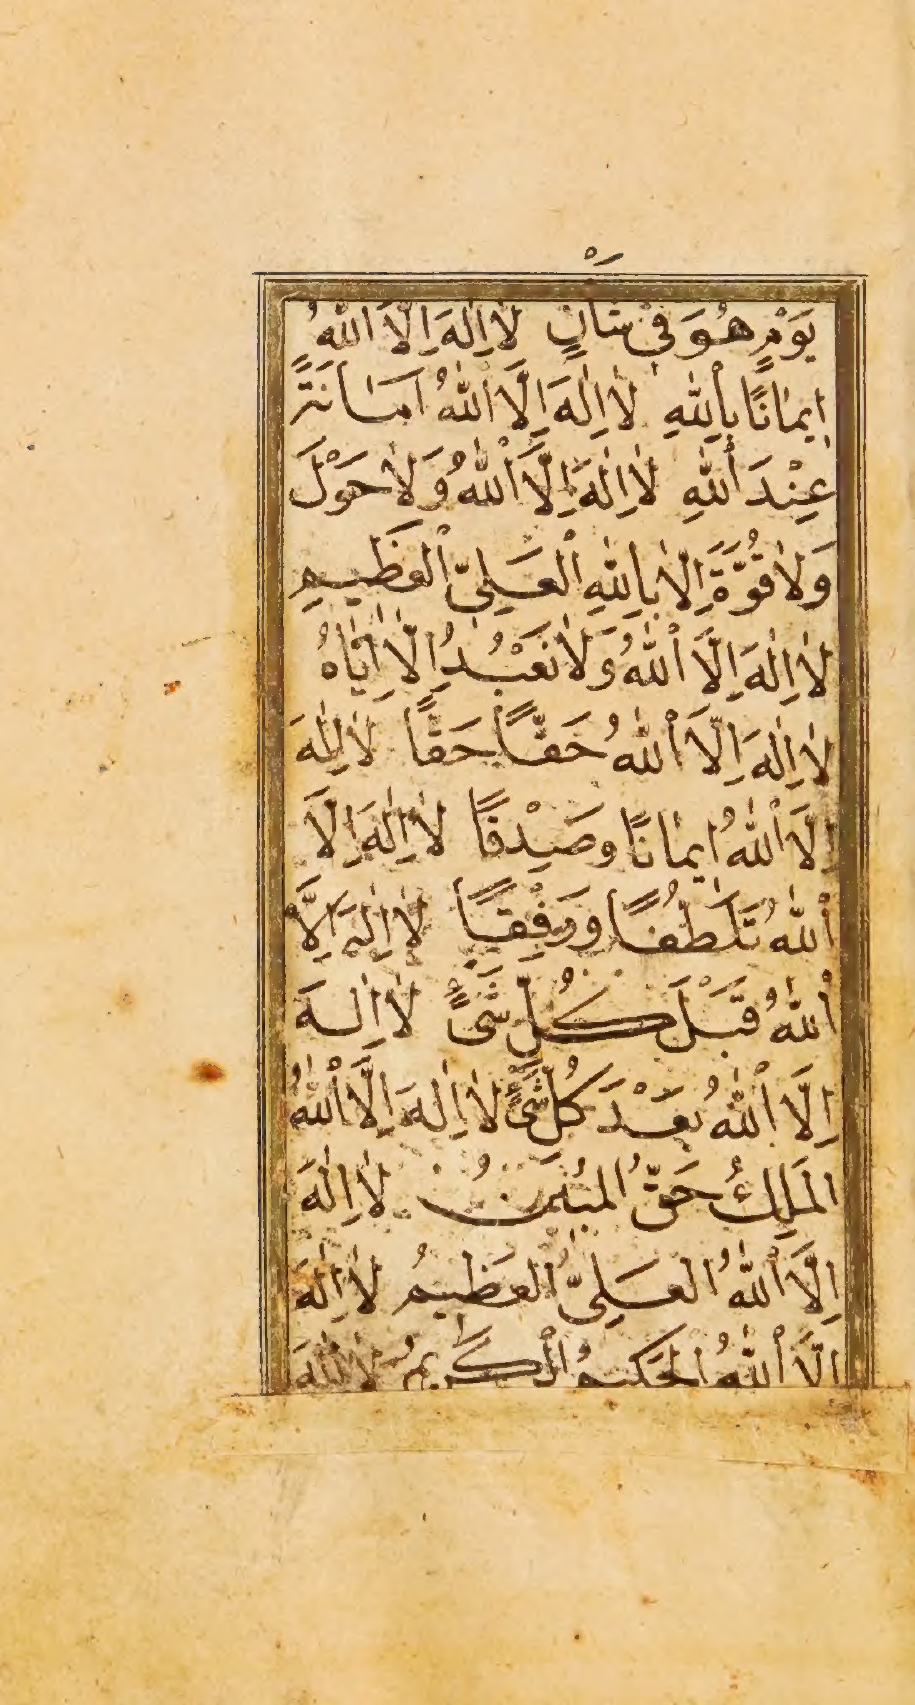 يَوْمٍ هُوَ فِي شَانٍ لَا اِلٰهَ اِلَّا اللّٰهُ
اِيمَانًا بِاللّٰهِ لَا اِلٰهَ اِلَّا اللّٰهُ اَمَانَةً
عِنْدَ اللّٰهِ لَا اِلٰهَ اِلَّا اللّٰهُ وَلَا حَوْلَ
وَلَا قُوَّةَ اِلَّا بِاللّٰهِ الْعَلِيِّ الْعَظِيمِ
لَا اِلٰهَ اِلَّا اللّٰهُ وَلَا نَعْبُدُ اِلَّا اِيَّاهُ
لَا اِلٰهَ اِلَّا اللّٰهُ حَقًّا حَقًّا لَا اِلٰهَ
اِلَّا اللّٰهُ اِيمَانًا وَصِدْقًا لَا اِلٰهَ اِلَّا
اللّٰهُ تَلَطُّفًا وَرِفْقِيًا لَا اِلٰهَ اِلَّا
اللّٰهُ قَبْلَ كُلِّ شَيْءٍ لَا اِلٰهَ
اِلَّا اللّٰهُ بَعْدَ كُلِّ شَيْءٍ لَا اِلٰهَ اِلَّا اللّٰهُ
الْمَلِكُ حَقُّ لَا اِلٰهَ
اِلَّا اللّٰهُ الْعَلِيُّ الْعَظِيمُ لَا اِلٰهَ
اِلَّا اللّٰهُ الْحَكِيمُ الْكَرِيمُ لَا اِلٰهَ